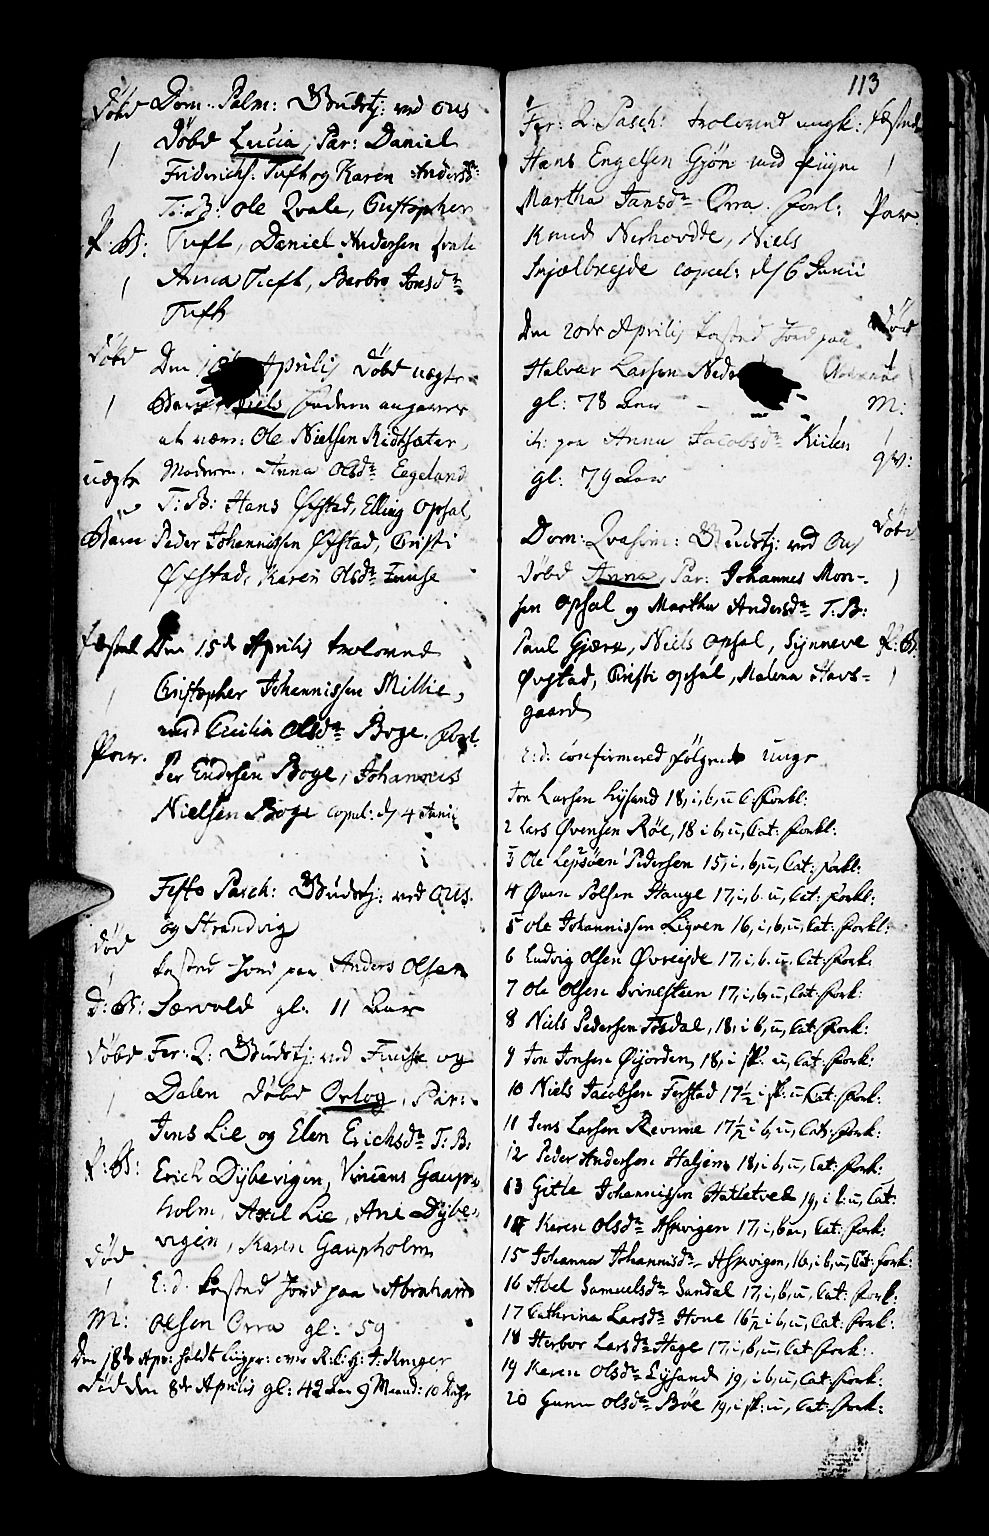 Døbd Dom: Palm: Gudstj: ved Ous
døbd Lucia, Par: Daniel
Friderichs: Tuft og Karen Andersdr
T: B: Ole Qvale, Cristopher
Tuft, Daniel Andersen
Anna Tuft, Barbro Jonsdr
Tuft
Døbd Den Aprilis døbd uægte
Barn Niels faderen angaves
at være: Ole Nielsen Ridtsæter,
uægte Moderen. Anna Olsdr Eegeland
T: B: Hans Øfstad, Elling Opsal,
Barn Peder Johannissen Øfstad, Cristi
Øfstad, Karen Olsdr Fuuse
Fæsted Den 15de Aprilis troloved
Cristopher Johannissen Millie,
med Cicilia Olsdr Boge. forl:
Par. Per Endresen Boge, Johannes
Nielsen Boge copul: d 4 Junii
Festo Pasch: Gudstj: ved Ous
og Strandvig
død kasted Jord paa Anders Olsen
D: B: Særvold gl: 11 Aar
Døbd Fer: 2: Gudstj: ved Fuuse og
Dalen døbd Orlog, Par:
Jens Lie og Elen Erichsdr T: B:
Erich Dybevigen, Vincens Gaup-
holm, Axel Lie, Ane Dybe-
vigen, Karen Gaupholm
død E: d: kasted Jord paa Abraham
M: Olsen Orra gl: 59
Den 18de Apr: holdt Ligpr: over J: Unger
død den 8de Aprilis gl: 42 Aar 9 Maand: 10 Dage
113
Fer: 2: Pasch: troloved ungk: Fæsted
Hans Engelsen Gjøn med Piigen
Martha Jansdr Orra. forl: Par
Knud Nerhovdde, Niels
Skjælbreide copul: d 6 Junii
Den 20de Aprilis kasted Jord paa død
Halvar Larsen
gl: 78 Aar M:
it: paa Anna Jacobsdr Kiilen qv:
gl: 79 Aar
Dom: Qvasim: Gudstj: ved Ous Døbt
døbd Anna, Par: Johannes Mon-
sen Opsal og Martha Andersdr T: B:
Paul Gjære, Niels Opsal, Synneve
Øvstad, Cristi Opsal, Malena Havs-
gaard
E: d: confirmered følgende unge
Jon Larsen Lysand 18, i, b, u, C: forkl:
2 Lars Øvensen Røe, 18 i b, u, Cat: forkl:
3 Ole Lepsøen Pedersen 15, i, b, u, Cat: forkl:
4 Øven Polsen Hauge 17, i, b. u, Cat: forkl:
5 Ole Johannissen Ligven 16, i, b, u, Cat: forkl:
6 Ludvig Olsen Øvreeide 17, i, b. u, Cat: fork:
7 Ole Olsen Svinesteen 17, i, b, u, Cat: fork:
8 Niels Pedersen Tøsdal, 18, i b, u, Cat: fork:
9 Jon Jonsen Øijorden, 18, i sk: u, Cat: fork:
10 Niels Jacobsen Ferstad 17½ i sk: u, Cat: fork:
11 Jens Larsen Revevne 17½ i b, u, Cat: fork:
12 Peder Andersen Haljem 18, i b, u, Cat: fork:
13 Gitle Johannissen Hatletvedt 19, i b: u, Cat:
14 Karen Olsdr Askvigen 17, i, b u, Cat: fork:
15 Johanna Johannisdr Askvigen, 16, i b, u, Cat: fork:
16 Abel Samuelsdr Sandal 17, i, b, u, Cat: fork:
17 Cathrina Larsdr Hove 16½ i b, u, Cat: fork:
18 Herbor Larsdr Hage 17, i b, u, Cat fork:
19 Karen Olsdr Lysand 19, i b, u, Cat: fork:
20 Gunne Olsdr Bøe 19, i sk: u, Cat: fork: